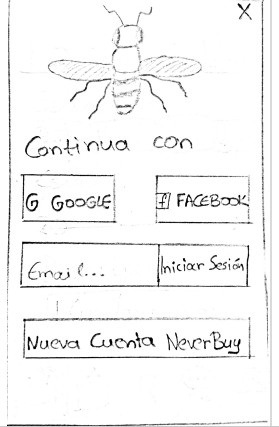 X
Continua con
G GOOGLE
f FACEBOOK
Email... Iniciar Sesión
Nueva Cuenta NeverBuy